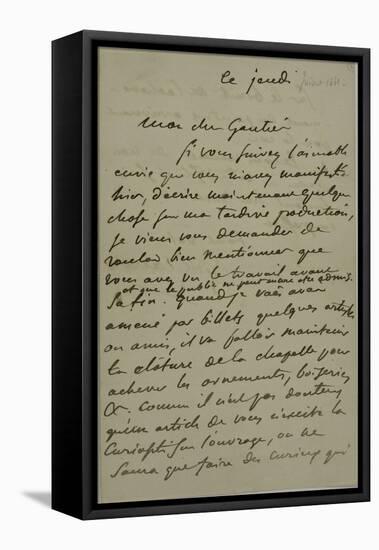 ce jeudi
Mon cher Gautier
Si vous suivez l'aimable
envie que vous m'avez manifestée
hier, d'écrire maintenant quelque
chose sur ma tardive production,
je viens vous demander de
vouloir bien mentionner que
vous avez vu le travail avant
et que le public ne peut encore être admis.
sa fin. Quand je vous avais
amené par billets quelques artistes
ou amis, il va falloir maintenir
la clôture de la chapelle pour
achever les ornements, boiseries
&. Comme il n'est pas douteux
qu'un article de vous n'excite la
curiosité sur l'ouvrage, on ne
saura que faire des curieux qui